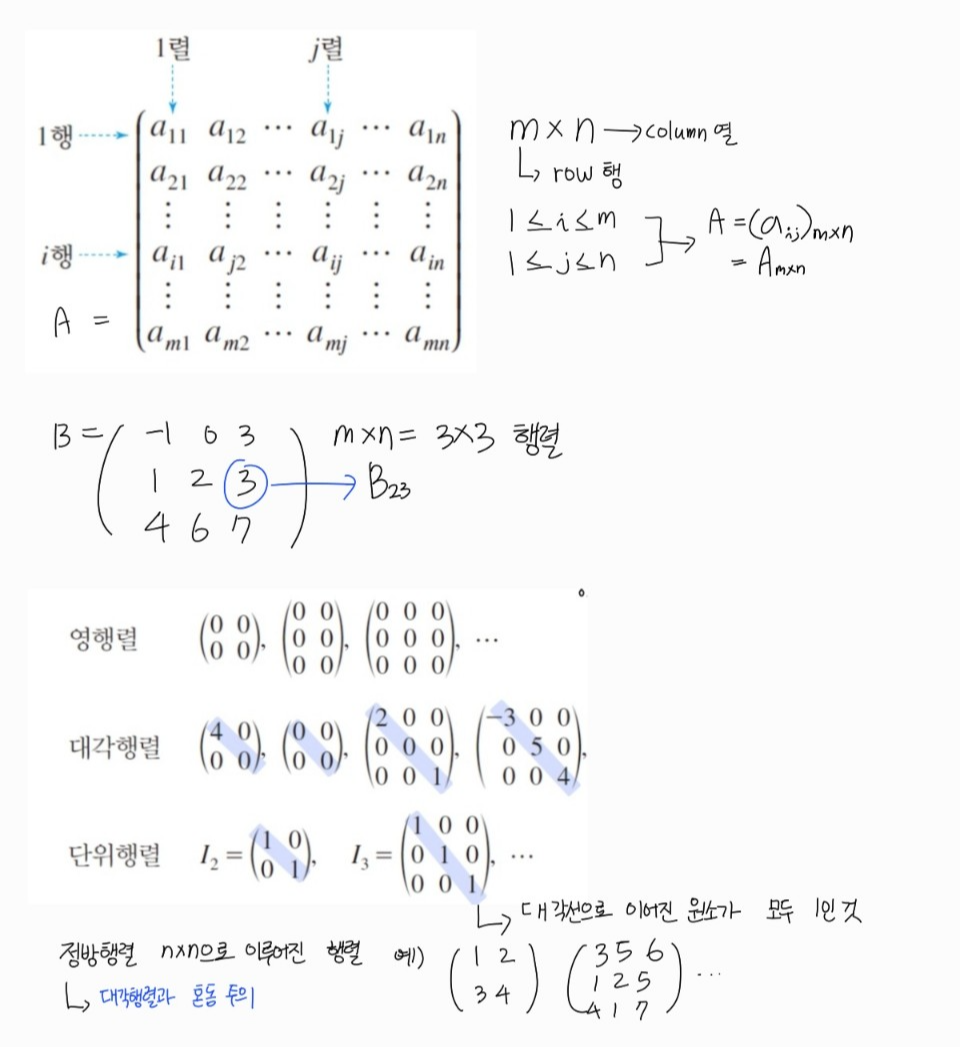 1렬 j렬
1행 a11 a12 ⋯ a1j ⋯ a1n
a21 a22 ⋯ a2j ⋯ a2n
⋮ ⋮ ⋮ ⋮ ⋮ ⋮
i행 ai1 aj2 ⋯ aij ⋯ ain
⋮ ⋮ ⋮ ⋮ ⋮ ⋮
A = am1 am2 ⋯ amj ⋯ amn
m × n → column 열
↳ row 행
1 ≤ i ≤ m
1 ≤ j ≤ n
→ A = (aij)m×n
= Am×n
B = ( -1 0 3 ) m×n = 3×3 행렬
1 2 3 → B23
4 6 7
영행렬 (0 0), (0 0), (0 0 0), ⋯
(0 0) (0 0) (0 0 0)
(0 0) (0 0 0)
대각행렬 (4 0), (0 0), (2 0 0), (−3 0 0),
(0 0) (0 0) (0 0 0) (0 5 0)
(0 0 1) (0 0 4)
단위행렬 I2 = (1 0), I3 = (1 0 0), ⋯
(0 1) (0 1 0)
(0 0 1)
↳ 대각선으로 이어진 원소가 모두 1인 것
정방행렬 n×n으로 이루어진 행렬 예) (1 2) (3 5 6) ⋯
(3 4) (1 2 5)
(4 1 7)
↳ 대각행렬과 혼동 주의